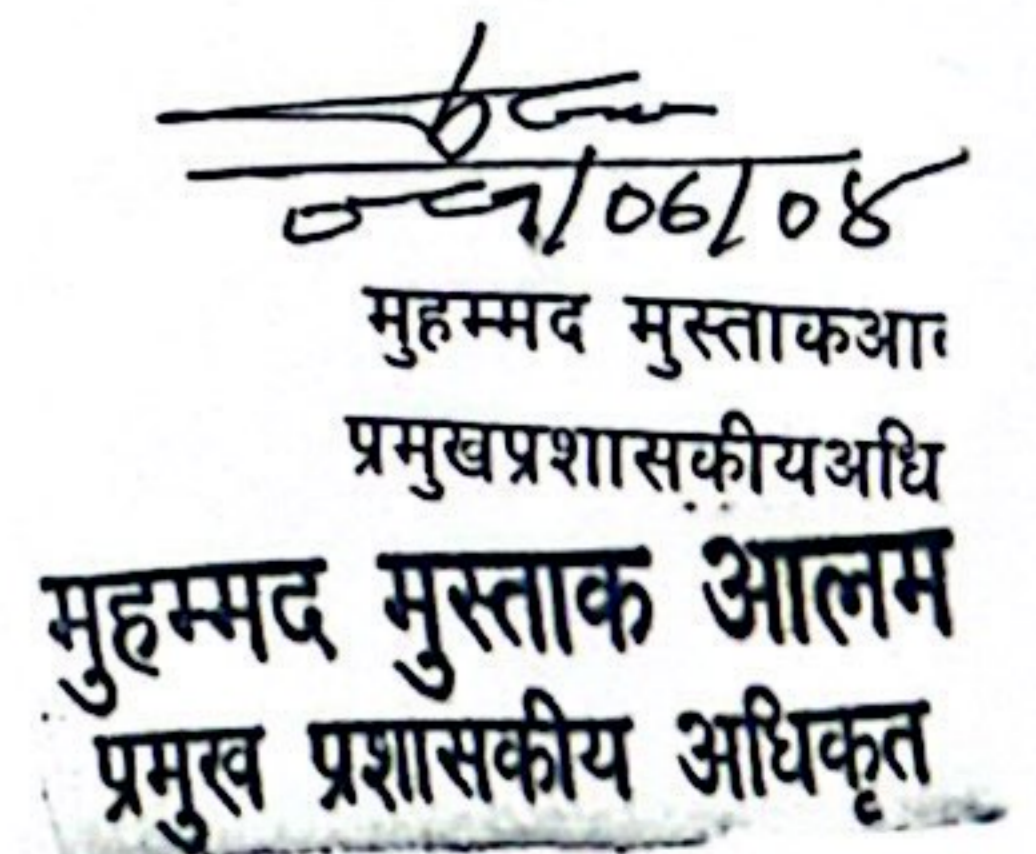 /06/08
मुहम्मद मुस्ताकआ
प्रमुखप्रशासकीयअधि
मुहम्मद मुस्ताक आलम
प्रमुख प्रशासकीय अधिकृत